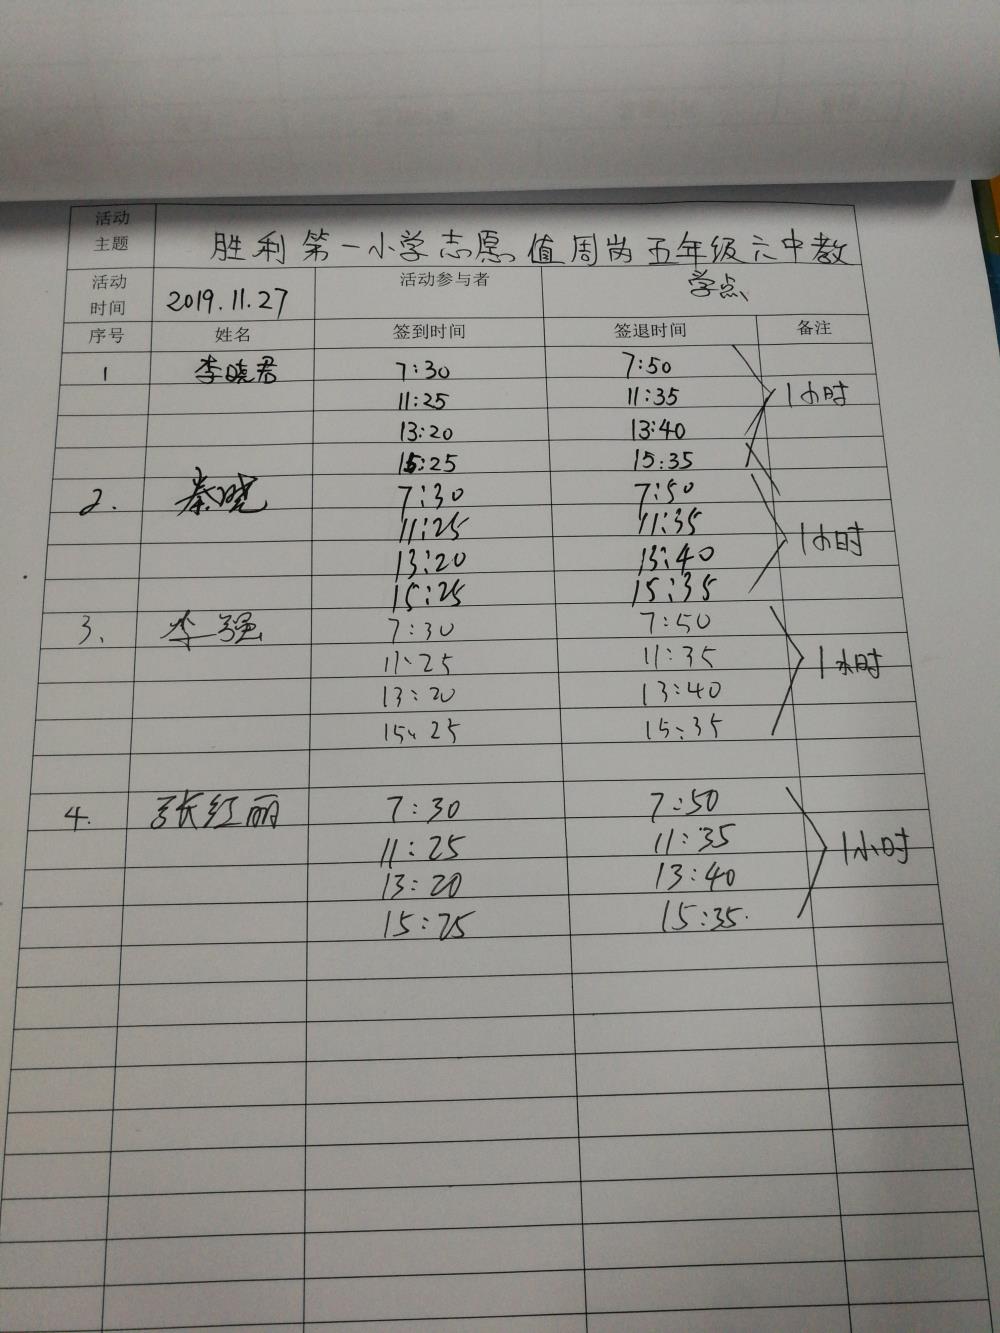 活动
主题
胜利第一小学志愿值周岗五年级六中教
学点
活动
时间
2019.11.27
活动参与者
序号 姓名 签到时间 签退时间 备注
1 李晓君 7:30 7:50
11:25 11:35 1小时
13:20 13:40
15:25 15:35
2. 秦晓 7:30 7:50
11:25 11:35 1小时
13:20 13:40
15:25 15:35
3、 李强 7:30 7:50
11:25 11:35 1小时
13:20 13:40
15:25 15:35
4. 张红丽 7:30 7:50
11:25 11:35 1小时
13:20 13:40
15:25 15:35.